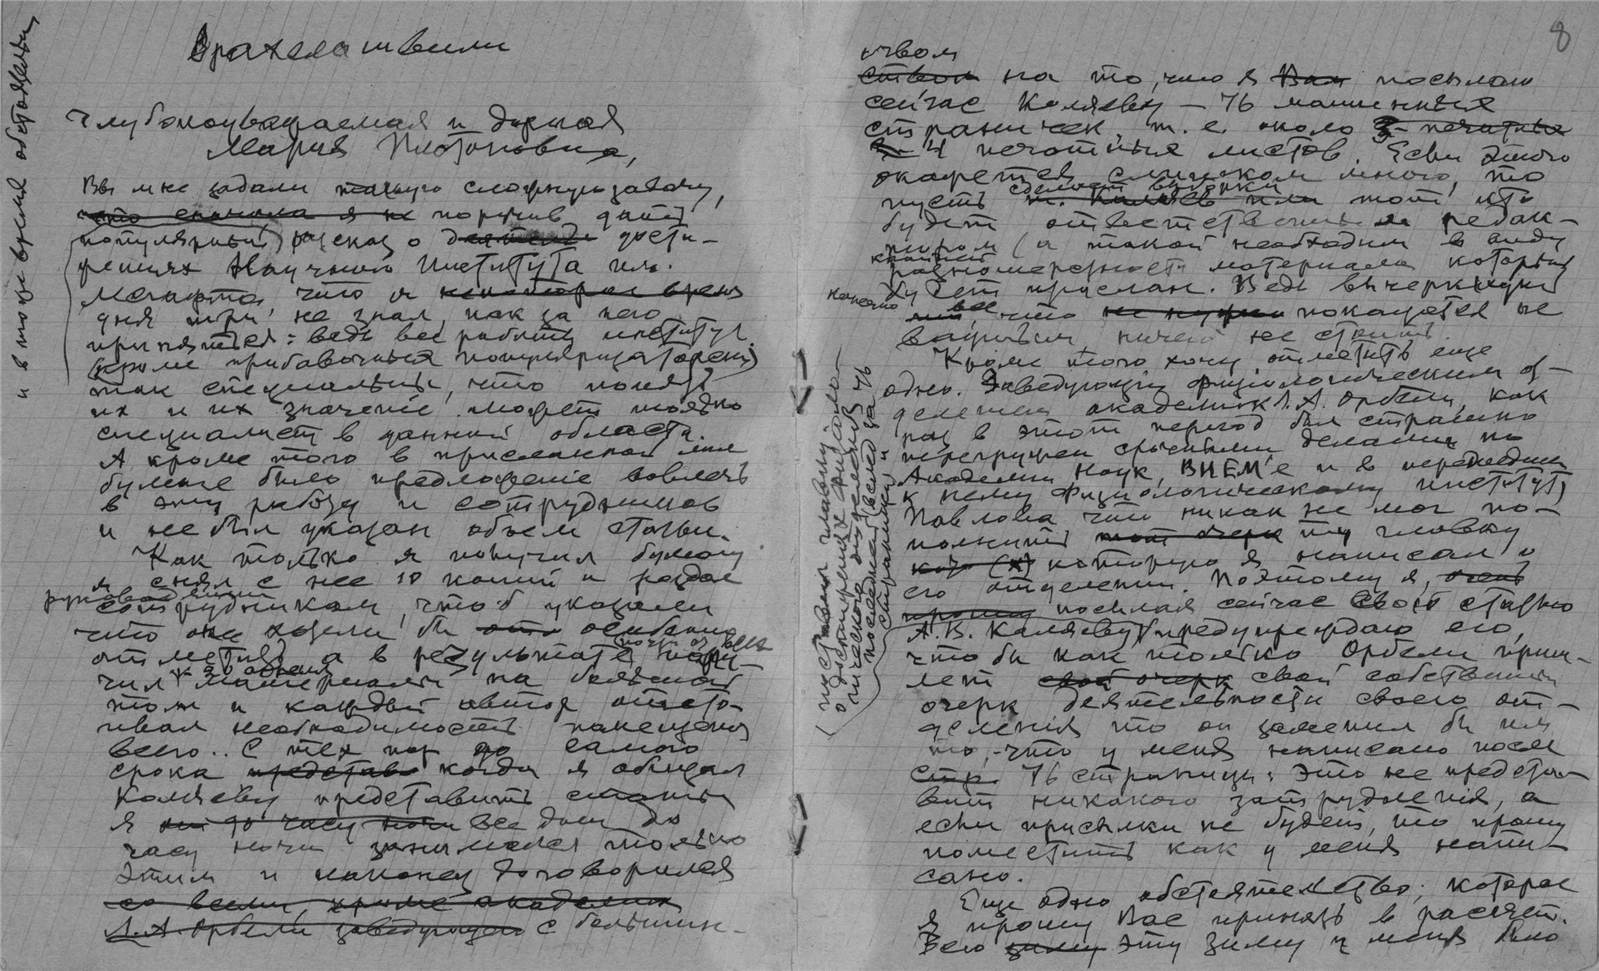 Орахелашвили
Глубокоуважаемая и дорогая
Мария Платоновна,
Вы мне задали такую сложную задачу,
поручив дать
(популярный) рассказ о дости-
жениях Научного Института им.
Лесгафта, что я некоторое время
дня три не знал, как за него
приняться: ведь все работы института
(кроме прибавочных
так специальны, что понять
их и их значение может только
специалист в данной области.
А кроме того в присланной мне
бумаге было предложение вовлечь
в эту работу и сотрудников
и не был указан объем статьи.
Как только я получил бумагу
я снял с нее 10 копий и раздал
сотрудникам, чтоб указали
что они хотели бы особенно
отметить, а в результате полу-
чил материалы на большой
том и каждый автор отста-
ивал необходимость помещения
всего.. С тех пор до самого
срока когда я обещал
Коляеву представить статью
я все дни до
часу ночи занимался только
этим и наконец договорился
со всеми, кроме академика
Л.А. Орбели заведующего с большин-
и в тоже время обстоятельный
8
ством
ством на то, что я Вам посылаю
сейчас Коляеву – 76 машинных
страничек, т.е. около 3 печатных
4 печатных листов. Если этого
окажется слишком много, то
сделает выборки
пусть т. Коляев или тот, кто
будет ответственным редак-
тором (а такой необходим в виду
крайней
разномерности материала который
будет прислан. Ведь вычеркнуть
конечно
все что не нужно покажется не
важным, ничего не стоит.
Кроме того хочу отметить еще
одно. Заведующий физиологическим от-
делением академик Л.А. Орбели, как
раз в этот период был страшно
перегружен срочными делами по
Академии наук, ВИЕМ'е и в перешедшем
к нему Физиологическому институту
Павлова, что никак не мог по-
полнить тот очерк ту главку
которую я написал о
его отделении. Поэтому я, очень
прошу посылая сейчас свою статью
А.В. Коляеву, предупреждаю его,
чтобы как только Орбели приш-
лет свой очерк свой собственный
очерк деятельности своего от-
деления, то он заменил бы им
то, что у меня написано после
стр. 76 страницы: это не предста-
вит никакого затруднения, а
если присылки не будет, то прошу
поместить как у меня напи-
сано.
Еще одно обстоятельство, которое
я прошу Вас принять в расчет.
Всю зиму эту зиму у меня было